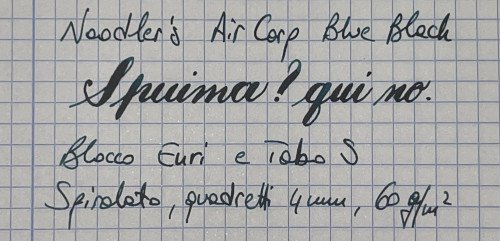 Noodler's Air Corp Blue Black
Spiuma? qui no.
Blocco Euri e Tabo S
Spiralato, quadretti 4mm, 60 g/m²